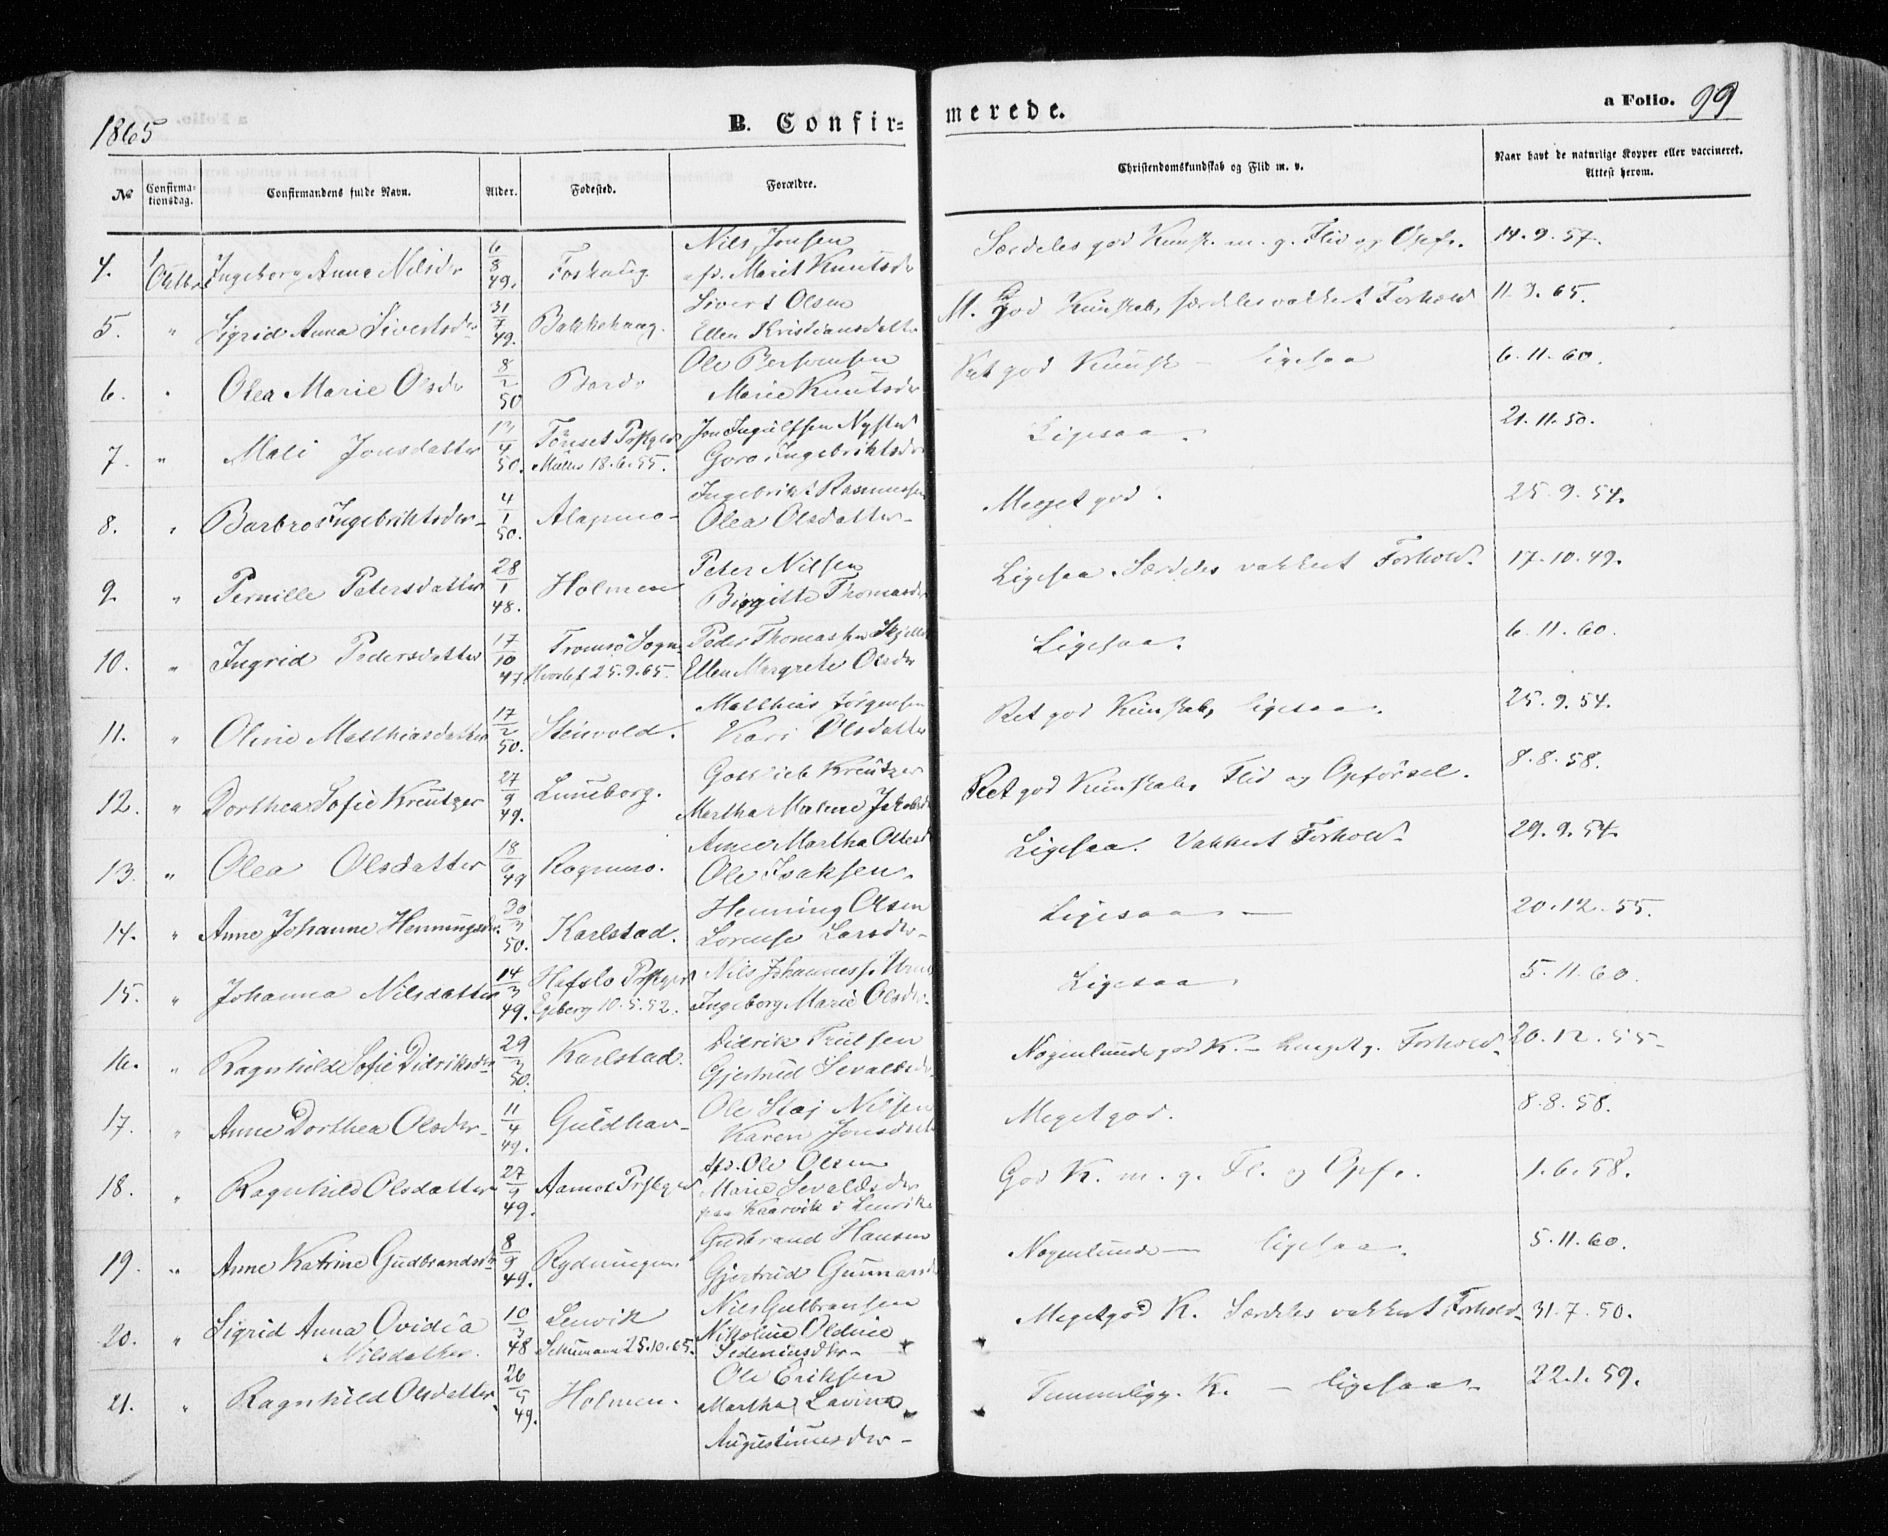 1865
B. Confir=
merede.
a Folio. 99
No
Confirma-
tionsdag.
Confirmandens fulde Navn.
Alder.
Fødested.
Forældre.
Christendomskundskab og Flid m. v.
Naar havt de naturlige Kopper eller vaccineret.
Attest herom.
4. 1/Octbr Ingeborg Anna Nilsdr 6/8 49. Foshaug Nils Jonsen
afd. Marit Knutsdr
Særdeles god Kunsk. m. g. Flid og Opf. 14.9.57.
5. " Sigrid Anna Sivertsdr 31/7 49. Bakkehaug. Sivert Olsen
Ellen Kristiansdatter
M. god Kunskab, særdeles vakkert Forhold 11.9.65.
6. " Olea Marie Olsdr 8/2 50 Bardo Ole
Marie Knutsdr
Ret god Kunsk ligesaa 6.11.60.
7. " Mali Jonsdatter 13/4 50. Tönset Prstgjeld Jon Ingulfsen Nystu
18.6.55. Goro Ingebriktsdr
Ligesaa. 21.11.50.
8. " Barbro Ingebriktsdr 4/1 50. Alapmo Ingebrikt Rasmussen
Olea Olsdatter
Meget god. 25.9.54.
9. " Pernille Petersdatter 28/1 48. Holmen Peter Nilsen
Birgitte Thomasdr
Ligesaa. Særdeles vakkert Forhold. 17.10.49.
10. " Ingrid Pedersdatter 17/10 47. Tromsö Sogn Peder Thomassen
25.9.65. Ellen Margrete Olsdr
Ligesaa. 6.11.60.
11. " Oline Matthiasdatter 17/2 50. Stenvold. Matthias Jörgensen
Kari Olsdatter
Ret god Kunskab, ligesaa. 25.9.54.
12. " Dorthea Sofie Kreutzer 27/9 49. Luneborg. Gottlieb Kreutzer
Martha Malene Jakobsdr
Ret god Kunskab, Flid og Opförsel. 8.8.58.
13. " Olea Olsdatter 18/6 49 Rognmo. Anne Martha Olsdr
Ole Isaksen.
Ligesaa. Vakkert Forhold. 29.9.54.
14. " Anne Johanne Henningsdr. 30/3 50. Karlstad. Henning Olsen
Lorense Larsdr
Ligesaa 20.12.55.
15. " Johanna Nilsdatter 14/3 49. Hafslo Prstgjeld Nils Johanness.
Egeberg 10.5.52. Ingeborg Marie Olsdr.
Ligesaa 5.11.60.
16. " Ragnhild Sofie Didriksdr 29/3 50. Karlstad. Didrik Trulsen
Gjertrud Sevaldsdr
Nogenlunde god K. - Forhold. 20.12.55.
17. " Anne Dorthea Olsdr 11/4 49. Guldhav Ole Nilsen
Karen Jonsdatter
Meget god. 8.8.58.
18. " Ragnhild Olsdatter 27/9 49. Aamot Prstgjeld Afd. Ole Olsen
Marie Sevaldsdr
paa Kaarvik i Lenvik
God K. m. g. Fl. og Opf. 1.6.58.
19. " Anne Katrine Gudbrandsdr 8/9 49. Rydningen. Gudbrand Hansen
Gjertrud Gunnarsdr
Nogenlunde - ligesaa. 5.11.60.
20. " Sigrid Anna Ovidia 10/3 48 Lenvik Nils Gulbransen
Nilsdatter. Schumann 25.10.65. Nikoline Oldine
Sedeniusdr
Meget god K. Særdeles vakkert Forhold 31.7.50.
21. " Ragnhild Olsdatter. 26/5 49. Holmen. Ole Eriksen
Martha Lavina
Augustinusdr
Temmelig g. K. - ligesaa 22.1.59.